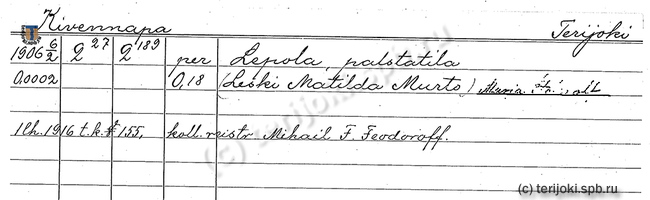 Kivennapa Terijoki
1906 6/2 2 27 2 189 per Lepola, palstatila
0.0002 0,18 (Leski Matilda Murto)
1916 t.k. № 155, koll. reistr Mihail F. Feodoroff.
(c) terijoki.spb.ru
(c) terijoki.spb.ru